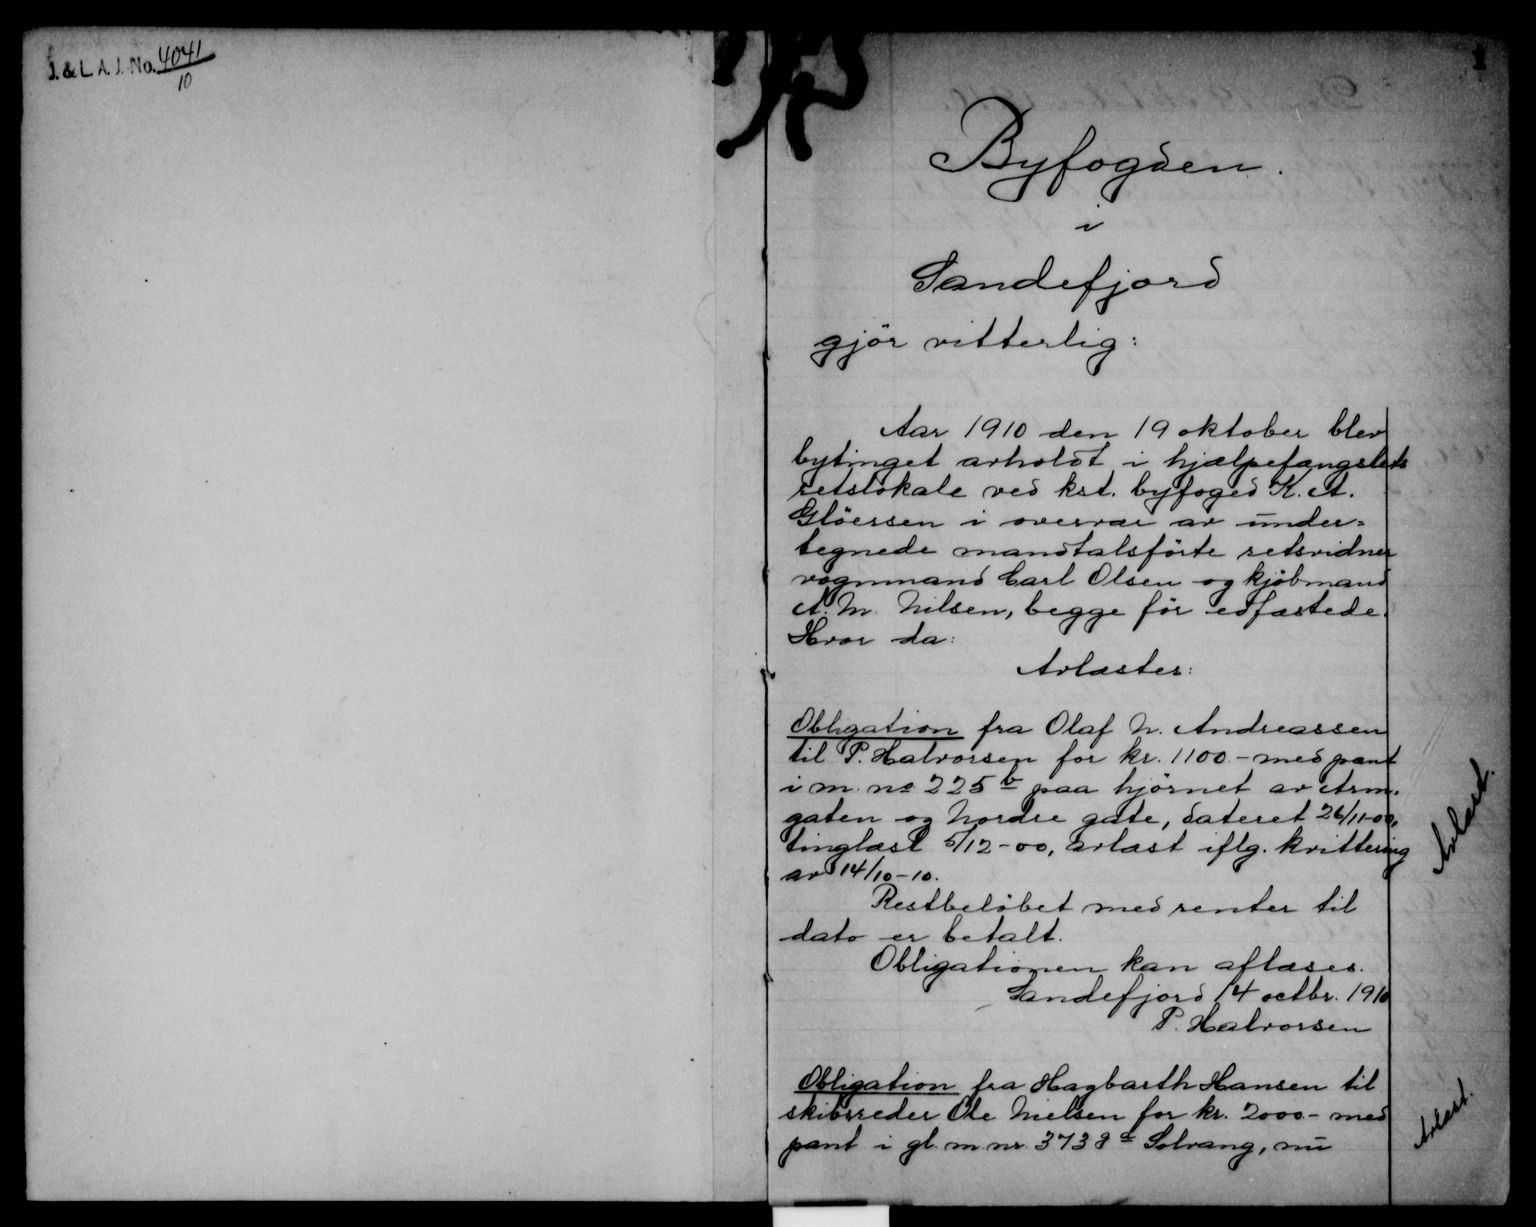 J. & L. A. J. No. 4041/10
1
Byfogden.
i
Sandefjord
gjör vitterlig:
Aar 1910 den 19 oktober blev
bytinget avholdt i hjælpefængslets
retslokale ved kst. byfoged K. A.
Glöersen i overvær av under=
tegnede mandtalsförte retsvidner
vognmand Carl Olsen og kjöbmand
A. M. Nilsen, begge för edfæstede.
Hvor da:
Avlæstes:
Obligation fra Olaf N. Andreassen
til P. Halvorsen for kr. 1100.- med pant
i m. no 225 b paa hjörnet av
gaten og Nordre gate, dateret 26/11-00,
tinglæst 5/12-00, avlæst iflg. kvittering
av 14/10-10.
Avlæst.
Restbelöbet med renter til
dato er betalt.
Obligationen kan aflæses.
Sandefjord 14 octbr. 1910
P. Halvorsen
Obligation fra Hagbarth Hansen til
skibsreder Ole Nielsen for kr. 2000.- med
pant i gl. m. nr. 373 Solvang, nu
Avlæst.